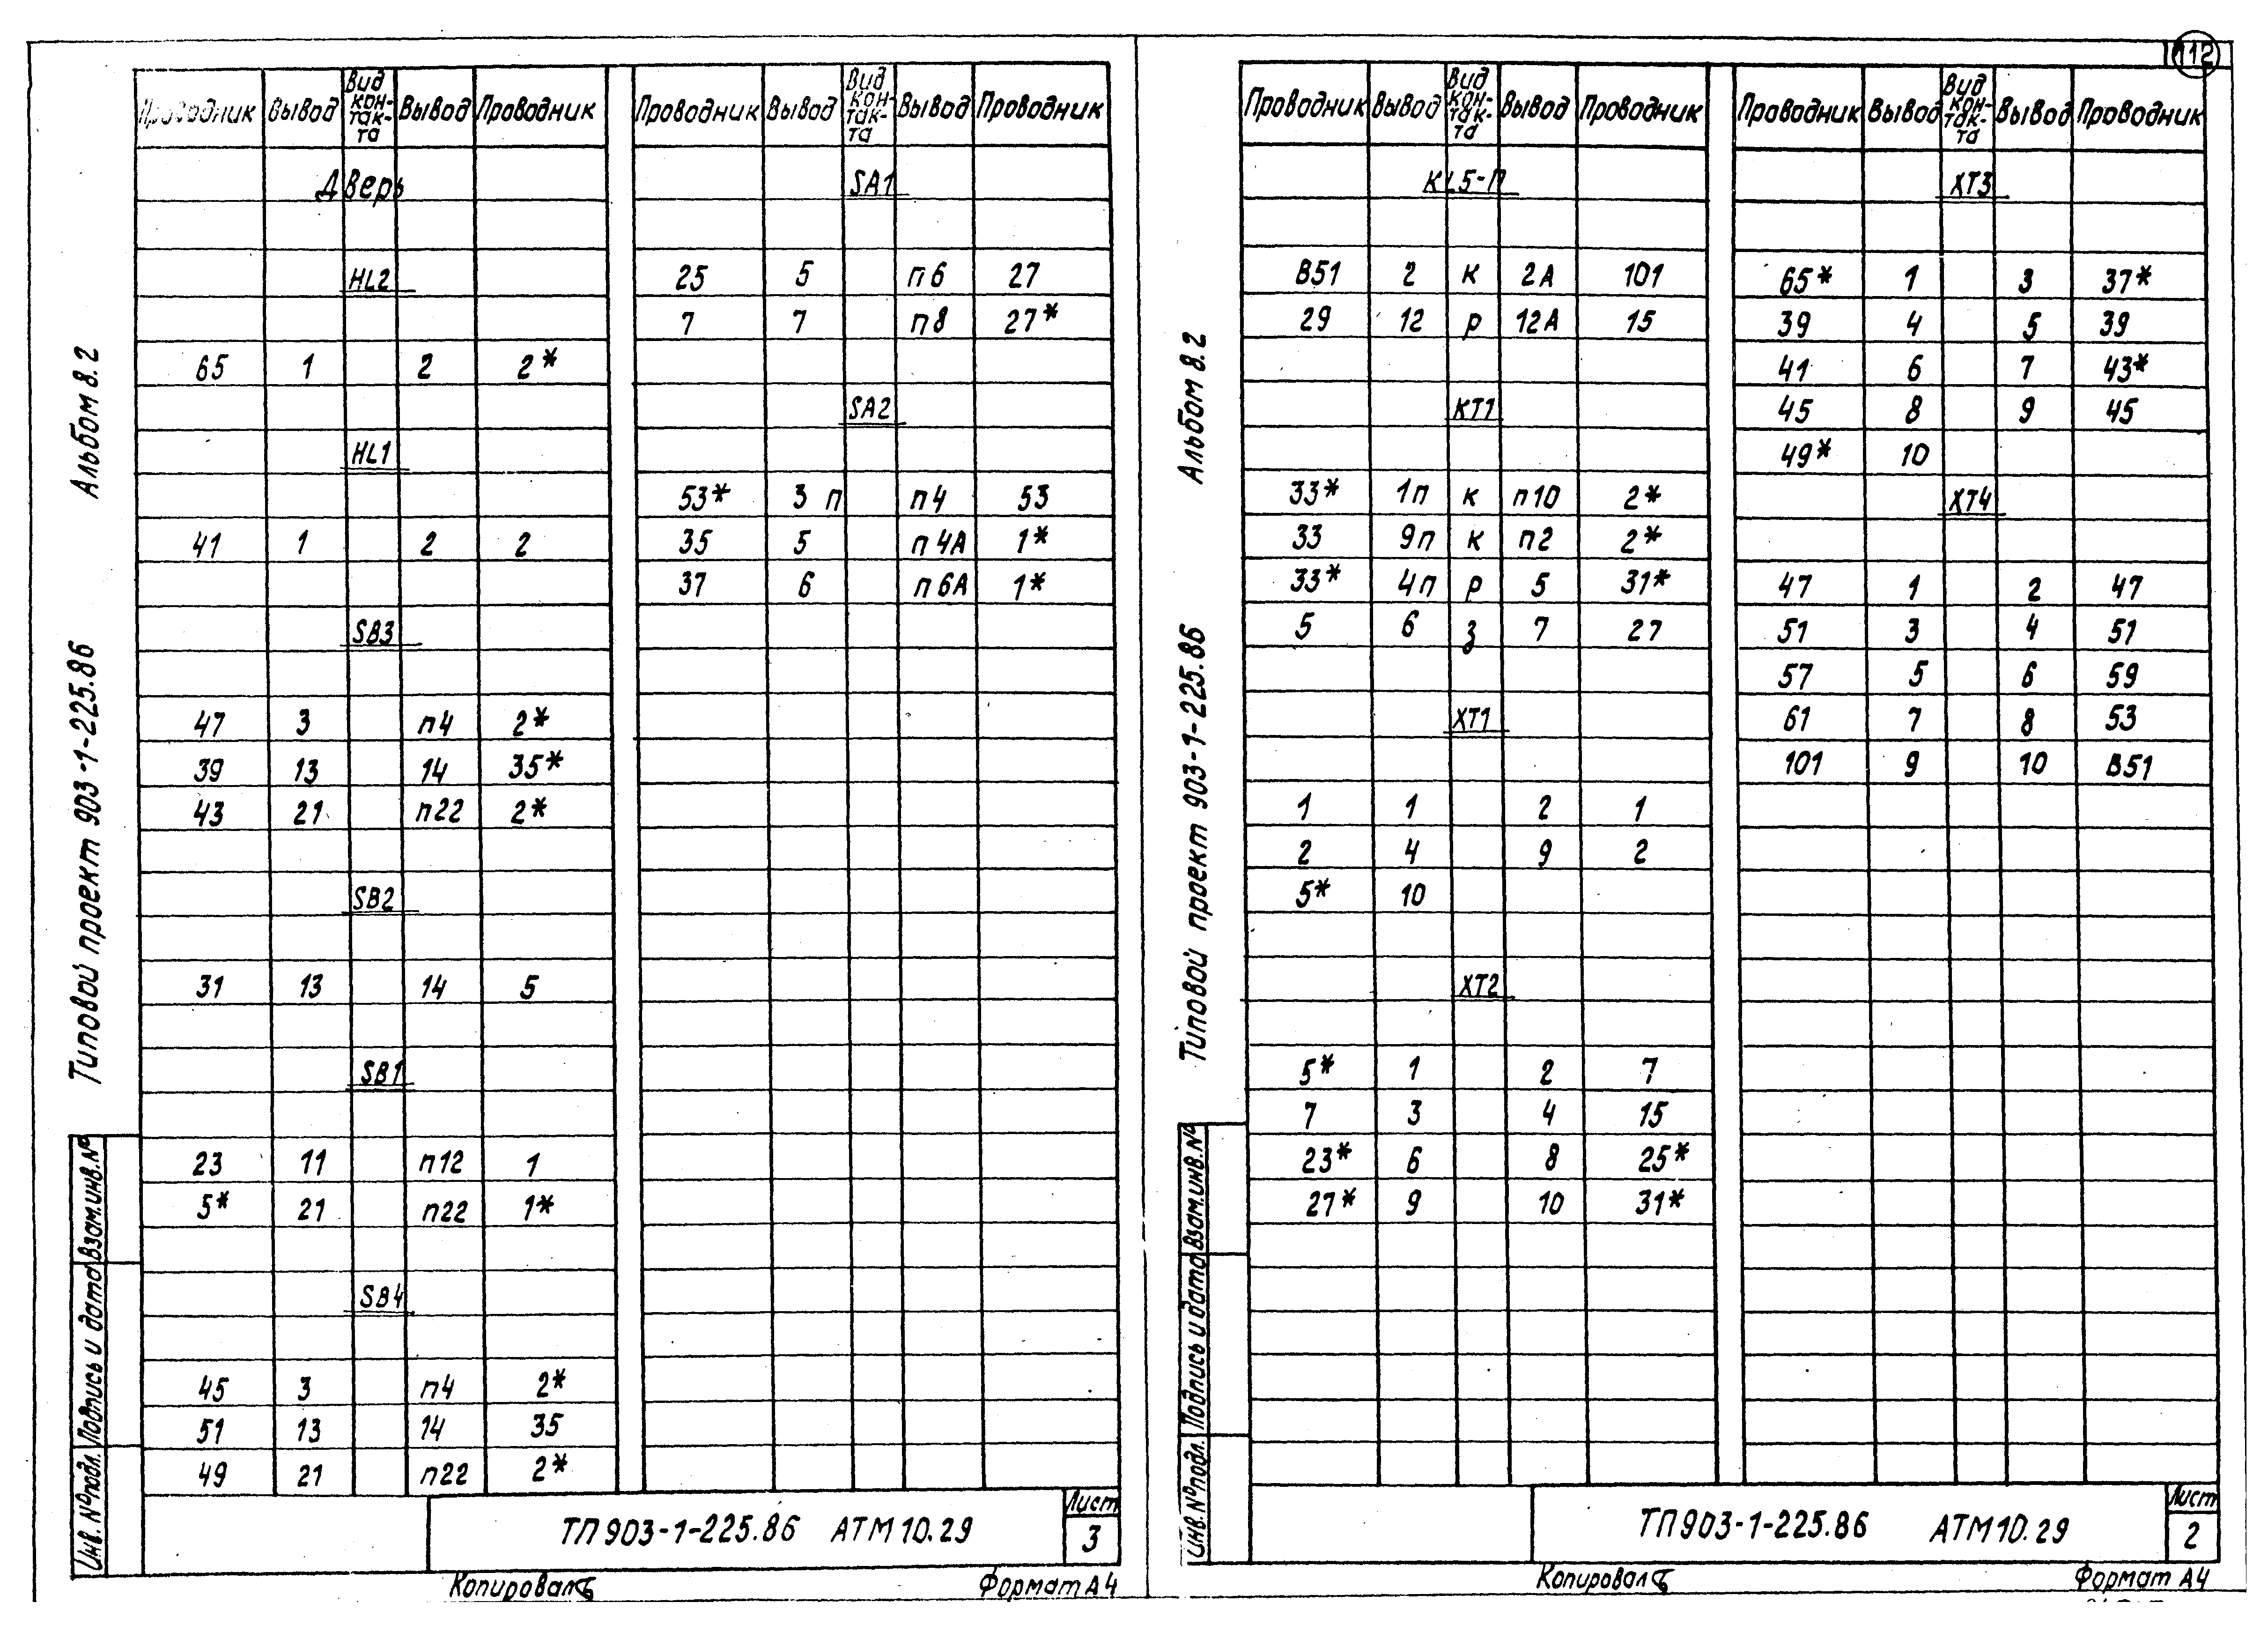 112
Альбом 8.2
Типовой проект 903-1-225.86
Проводник Вывод Вид кон-так-та Вывод Проводник
Дверь
HL2
65 1 2 2*
HL1
41 1 2 2
SB3
47 3 п4 2*
39 13 14 35*
43 21 п22 2*
SB2
31 13 14 5
SB1
23 11 п12 1
5* 21 п22 1*
SB4
45 3 п4 2*
51 13 14 35
49 21 п22 2*
Проводник Вывод Вид кон-так-та Вывод Проводник
SA1
25 5 п6 27
7 7 п8 27*
SA2
53* 3 п п4 53
35 5 п4А 1*
37 6 п6А 1*
Инв. №подл. Подпись и дата Взам.инв.№
ТП903-1-225.86 АТМ10.29
Лист
3
Копировал
Формат А4
Альбом 8.2
Типовой проект 903-1-225.86
Проводник Вывод Вид кон-так-та Вывод Проводник
KL5-П
В51 2 к 2А 101
29 12 р 12А 15
КТ1
33* 1п к п10 2*
33 9п к п2 2*
33* 4п р 5 31*
5 6 з 7 27
ХТ1
1 1 2 1
2 4 9 2
5* 10
ХТ2
5* 1 2 7
7 3 4 15
23* 6 8 25*
27* 9 10 31*
Проводник Вывод Вид кон-так-та Вывод Проводник
ХТ3
65* 1 3 37*
39 4 5 39
41 6 7 43*
45 8 9 45
49* 10
ХТ4
47 1 2 47
51 3 4 51
57 5 6 59
61 7 8 53
101 9 10 В51
Инв. №подл. Подпись и дата Взам.инв.№
ТП903-1-225.86 АТМ10.29
Лист
2
Копировал
Формат А4